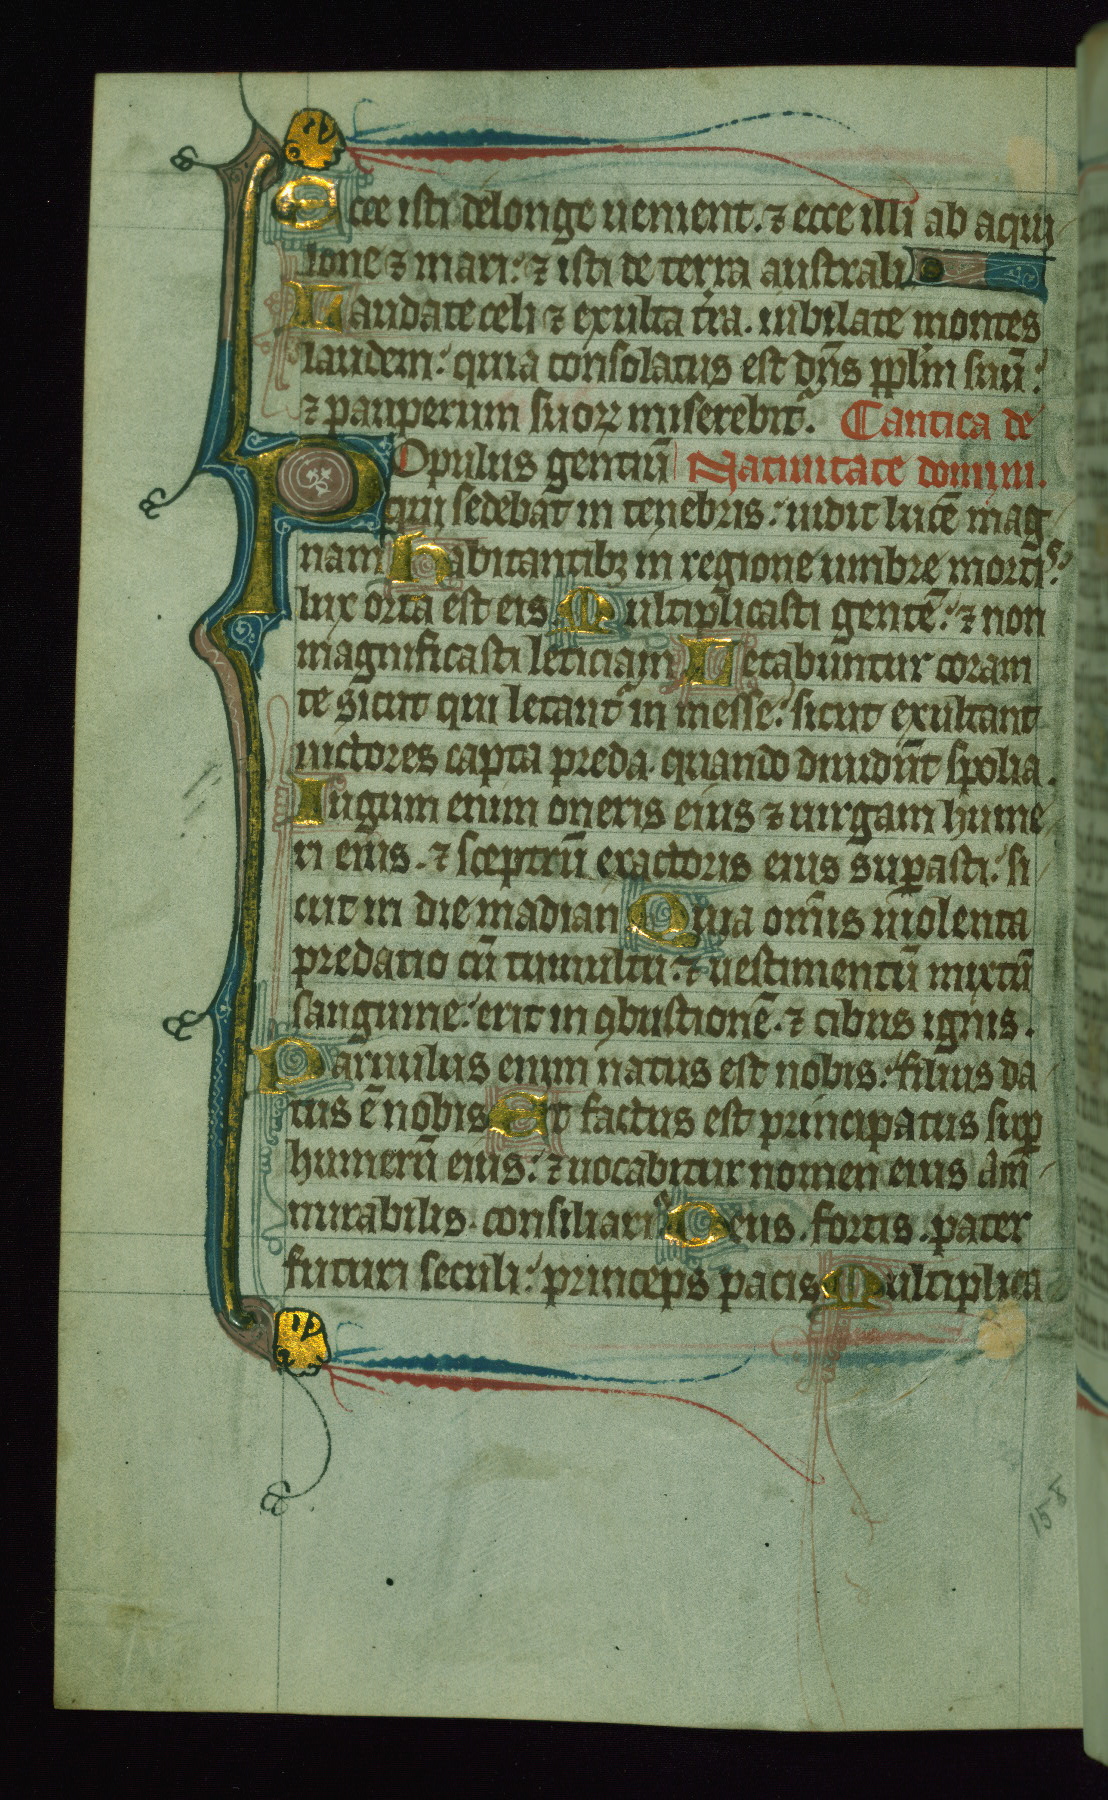 Ecce isti delonge uenient. ⁊ ecce illi ab aqui
lone ⁊ mari: ⁊ isti de terra australi
Laudate celi ⁊ exulta t̄ra. iubilate montes
laudem: quia consolatus est dn̄s pplm̄ suū:
⁊ pauperum suoꝝ miserebit᷑. Cantica de
POpulus gentiū Natiuitate domini.
qui sedebat in tenebris: uidit lucē mag
nam habitantibꝫ in regione umbre mortis:
lux orta est eis Multiplicasti gentē: ⁊ non
magnificasti leticiam Letabuntur coram
te sicut qui letant᷑ in messe: sicut exultant
uictores capta preda. quando diuidūt spolia.
Iugum enim oneris eius ⁊ uirgam hume
ri eius. ⁊ sceptrū exactoris eius suꝑasti: si
cut in die madian Quia omīs uiolenta
predatio cū tumultu: ⁊ uestimentū mixtū
sanguine: erit in ꝯbustionē. ⁊ cibus ignis.
Paruulus enim natus est nobis: filius da
tus ē nobis Et factus est principatus suꝑ
humerū eius: ⁊ uocabitur nomen eius am̄
mirabilis. consiliariꝰ Deus. fortis. pater
futuri seculi: princeps pacis Multiplica
158